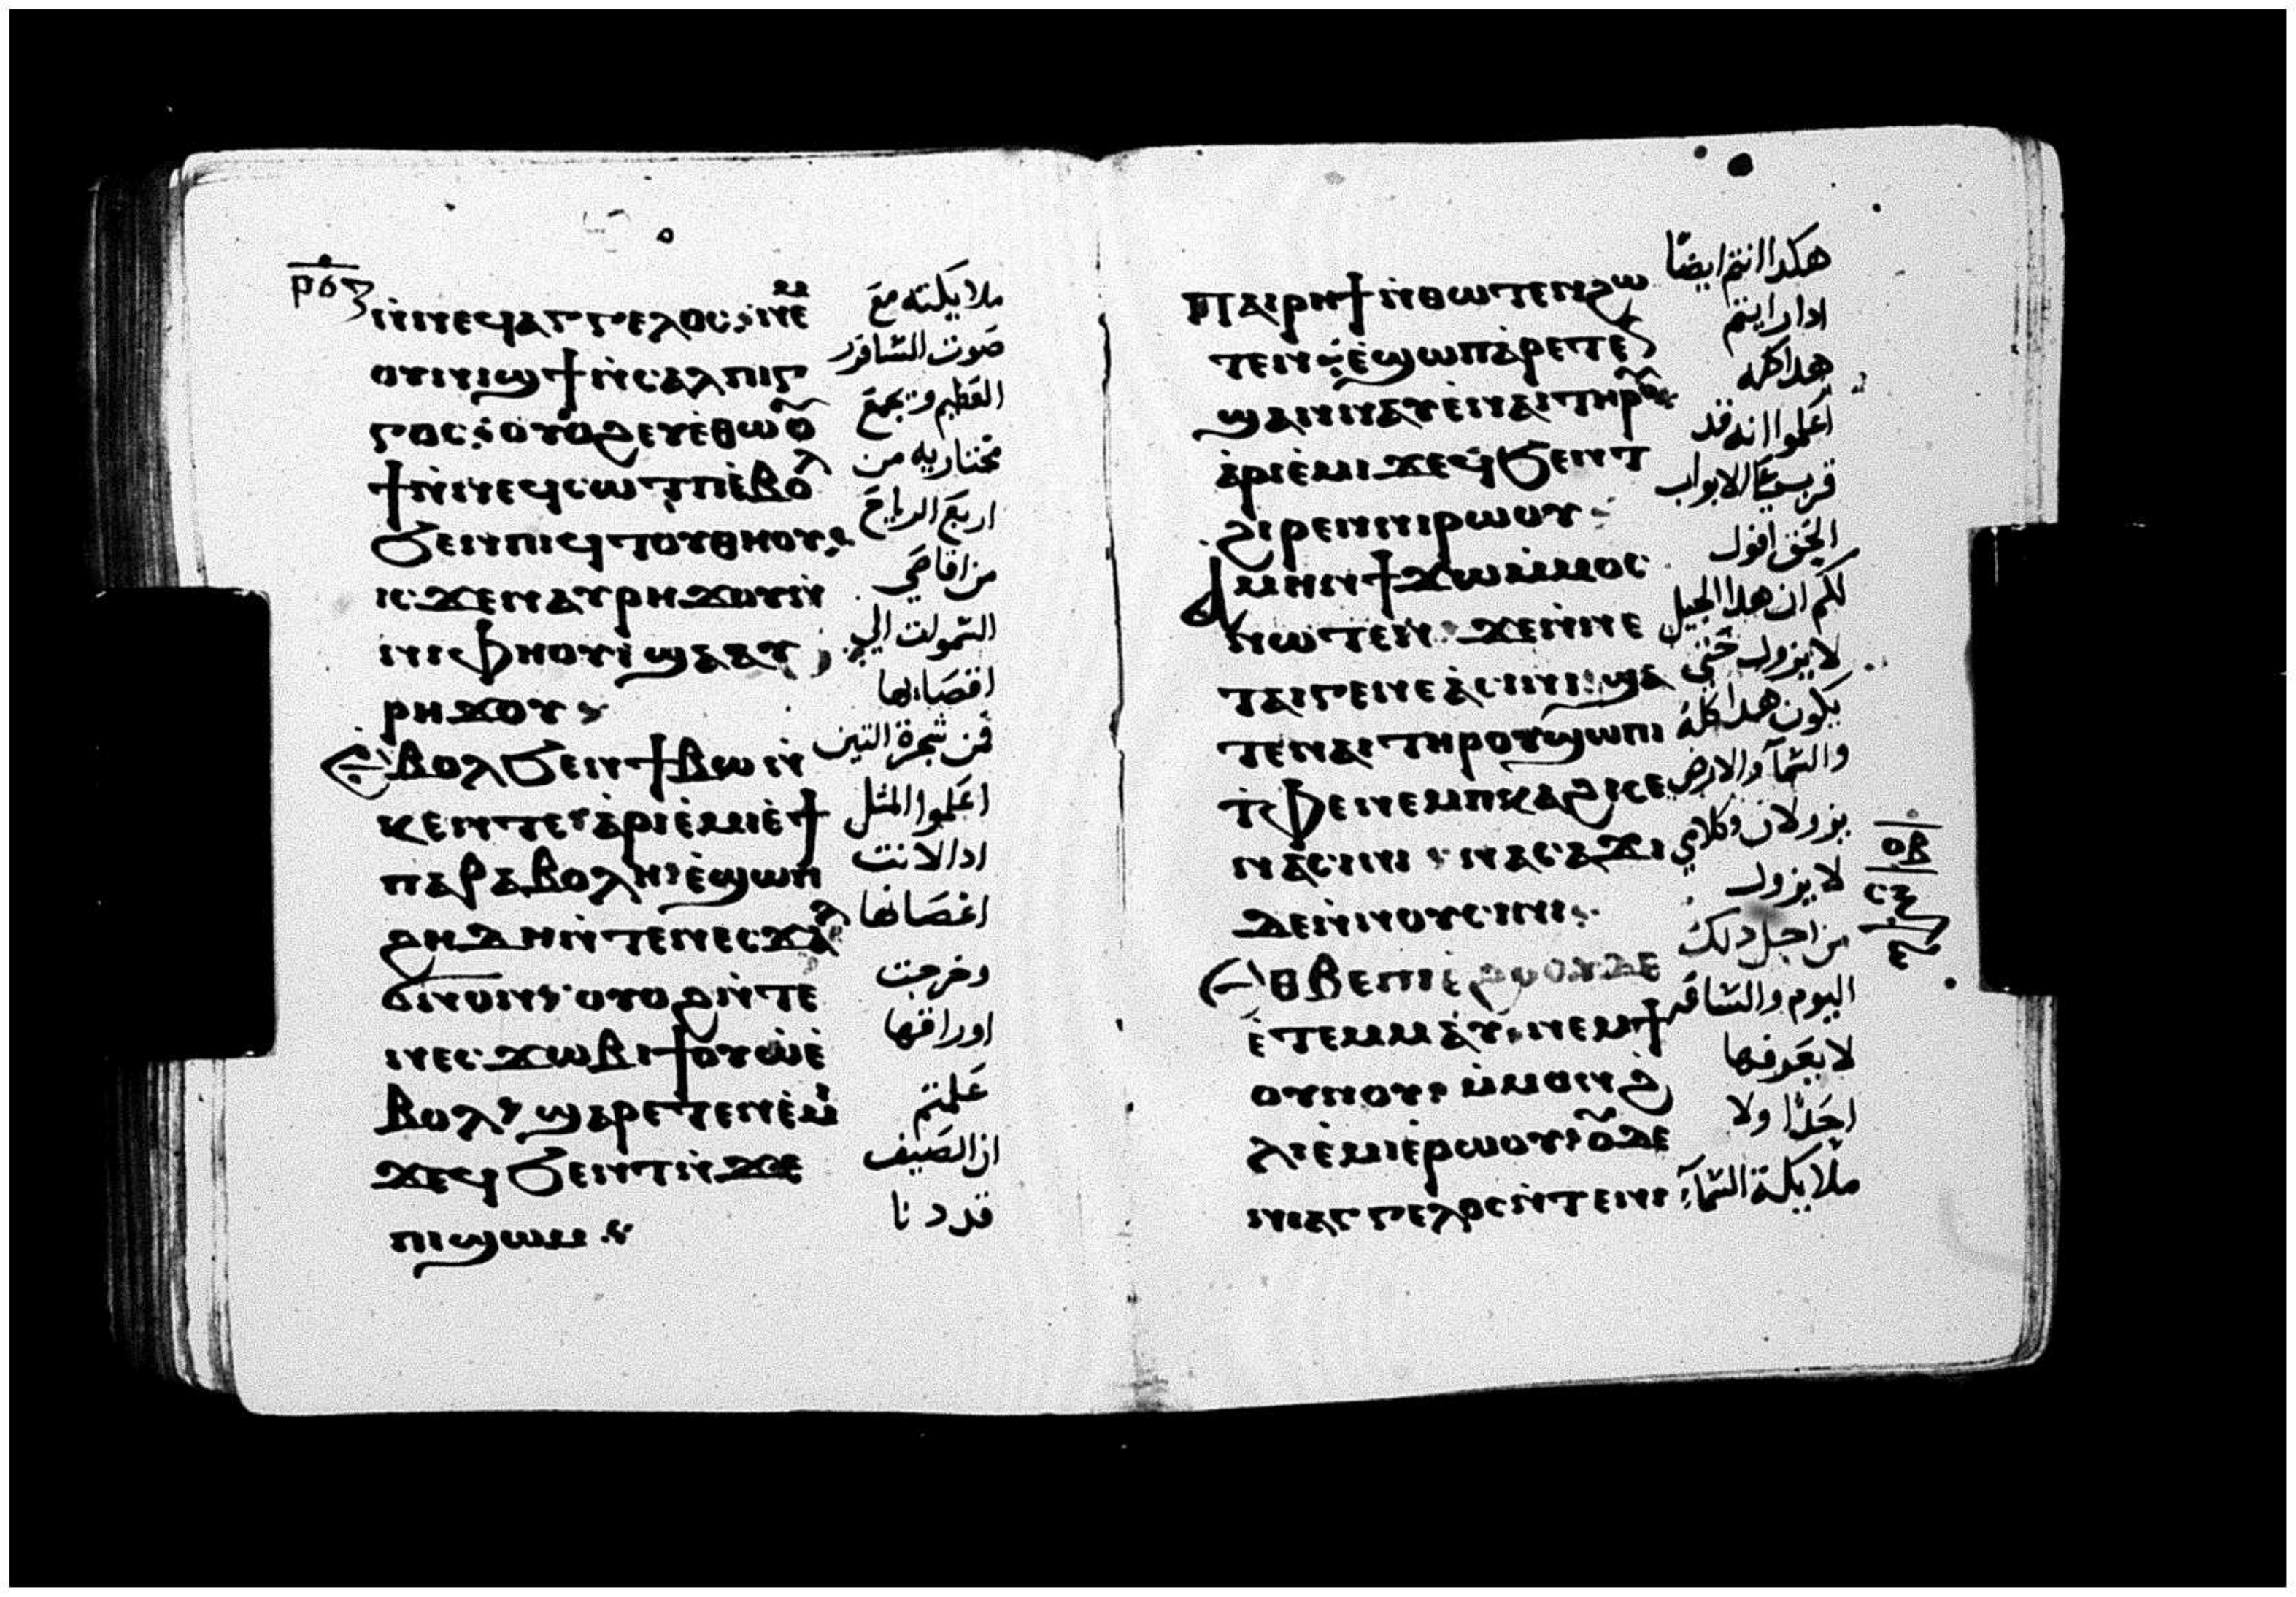 ⲣⲟⲍ
ⲛ̀ⲛⲉϥⲁⲅⲅⲉⲗⲟⲥ ⲛⲉⲙ
ⲟⲩⲛⲓϣϯ ⲛ̀ⲥⲁⲗⲡⲓⲅ
ⲅⲟⲥ ⲟⲩⲟϩ ⲉⲩⲉ̀ⲑⲱⲟⲩ
ϯ ⲛ̀ⲛⲉϥⲥⲱⲧⲡ ⲉ̀ⲃⲟⲗ
ϧⲉⲛ ⲡⲓϥⲧⲟⲩⲑⲏⲟⲩ
ⲓⲥϫⲉⲛ ⲁⲩⲣⲏϫⲟⲩ ⲛ̀
ⲛⲓⲫⲏⲟⲩⲓ̀ ϣⲁ ⲁⲩ
ⲣⲏϫⲟⲩ
ⲉ̀ⲃⲟⲗ ϧⲉⲛ ϯⲃⲱ ⲛ̀
ⲕⲉⲛⲧⲉ ⲁ̀ⲣⲓⲉ̀ⲙⲓ ⲉ̀ϯ
ⲡⲁⲣⲁⲃⲟⲗⲏ ⲉ̀ϣⲱⲡ
ϩⲏⲇⲏ ⲛ̀ⲧⲉ ⲛⲉⲥϫⲁⲗ
ϭⲛⲟⲛ ⲟⲩⲟϩ ⲛ̀ⲧⲉ
ⲛⲉⲥϫⲱⲃⲓ ϯⲟⲩⲱ ⲉ̀
ⲃⲟⲗ ϣⲁⲣⲉⲧⲉⲛⲉ̀ⲙⲓ
ϫⲉ ϥϧⲉⲛⲧ ⲛ̀ϫⲉ
ⲡⲓϣⲱⲙ
ملايكته مع
صوت السافور
العظيم ويجمع
مختاريه من
اربع الرياح
من اقاصي
السموات الي
اقصاءها
فمن شجرة التين
اعلموا المثل
ادا لانت
اغصانها
وخرجت
اوراقها
علمتم
ان الصيف
قد دنا
ⲡⲁⲓⲣⲏϯ ⲛ̀ⲑⲱⲧⲉⲛ ϩⲱ
ⲧⲉⲛ ⲉ̀ϣⲱⲡ ⲁⲣⲉⲧⲉⲛ
ϣⲁⲛⲛⲁⲩ ⲉ̀ⲛⲁⲓ ⲧⲏⲣⲟⲩ
ⲁ̀ⲣⲓⲉ̀ⲙⲓ ϫⲉ ϥϧⲉⲛⲧ
ϩⲓⲣⲉⲛ ⲛⲓⲣⲱⲟⲩ
ⲁⲙⲏⲛ ϯϫⲱ ⲙ̀ⲙⲟⲥ
ⲛⲱⲧⲉⲛ ϫⲉ ⲛ̀ⲛⲉ
ⲧⲁⲓⲅⲉⲛⲉⲁ̀ ⲥⲓⲛⲓ ϣⲁ
ⲧⲉ ⲛⲁⲓ ⲧⲏⲣⲟⲩ ϣⲱⲡⲓ
ⲧ̀ⲫⲉ ⲛⲉⲙ ⲡⲕⲁϩⲓ ⲥⲉ
ⲛⲁⲥⲓⲛⲓ ⲛⲁⲥⲁϫⲓ
ⲇⲉ ⲛ̀ⲛⲟⲩⲥⲓⲛⲓ
ⲉⲑⲃⲉ ⲡⲓⲉ̀ϩⲟⲟⲩ ⲇⲉ
ⲉ̀ⲧⲉⲙⲙⲁⲩ ⲛⲉⲙ ϯ
ⲟⲩⲛⲟⲩ ⲙ̀ⲙⲟⲛ ϩ
ⲗⲓ ⲉ̀ⲙⲓ ⲉ̀ⲣⲱⲟⲩ ⲟⲩⲇⲉ
ⲛⲓⲁⲅⲅⲉⲗⲟⲥ ⲛ̀ⲧⲉ ⲛⲓ
هكدا انتم ايضا
ادا رايتم
هدا كله
اعلموا انه قد
قرب علي الابواب
الحق اقول
لكم ان هدا الجيل
لا يزول حتي
يكون هدا كله
والسما والارض
يزولان وكلامي
لا يزول
من اجل دلك
اليوم والساعه
لا يعرفها
احدا ولا
ملايكة السماء
ⲟⲃ